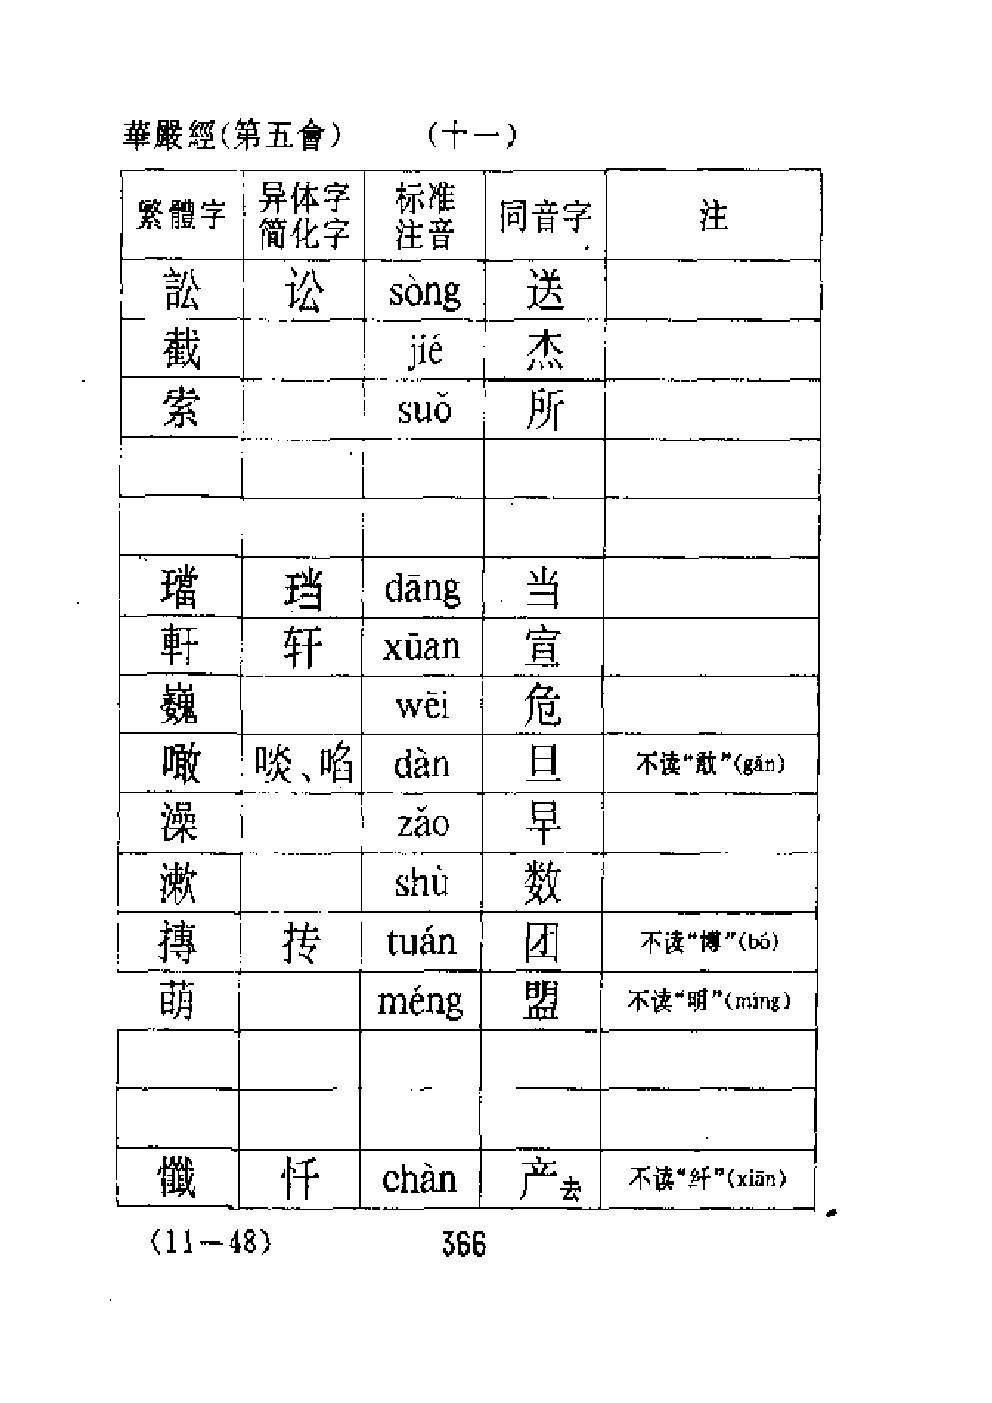 華嚴經(第五會) (十一)
繁體字 异体字 简化字 标准注音 同音字 注
訟 讼 sòng 送
截 jié 杰
索 suǒ 所
璫 珰 dāng 当
軒 轩 xūan 宣
巍 wēi 危
噉 啖、啗 dàn 旦 不读“敢”(gǎn)
澡 zǎo 早
漱 shù 数
摶 抟 tuán 团 不读“博”(bó)
萌 méng 盟 不读“明”(míng)
懺 忏 chàn 产去 不读“纤”(xiān)
(11－48) 366